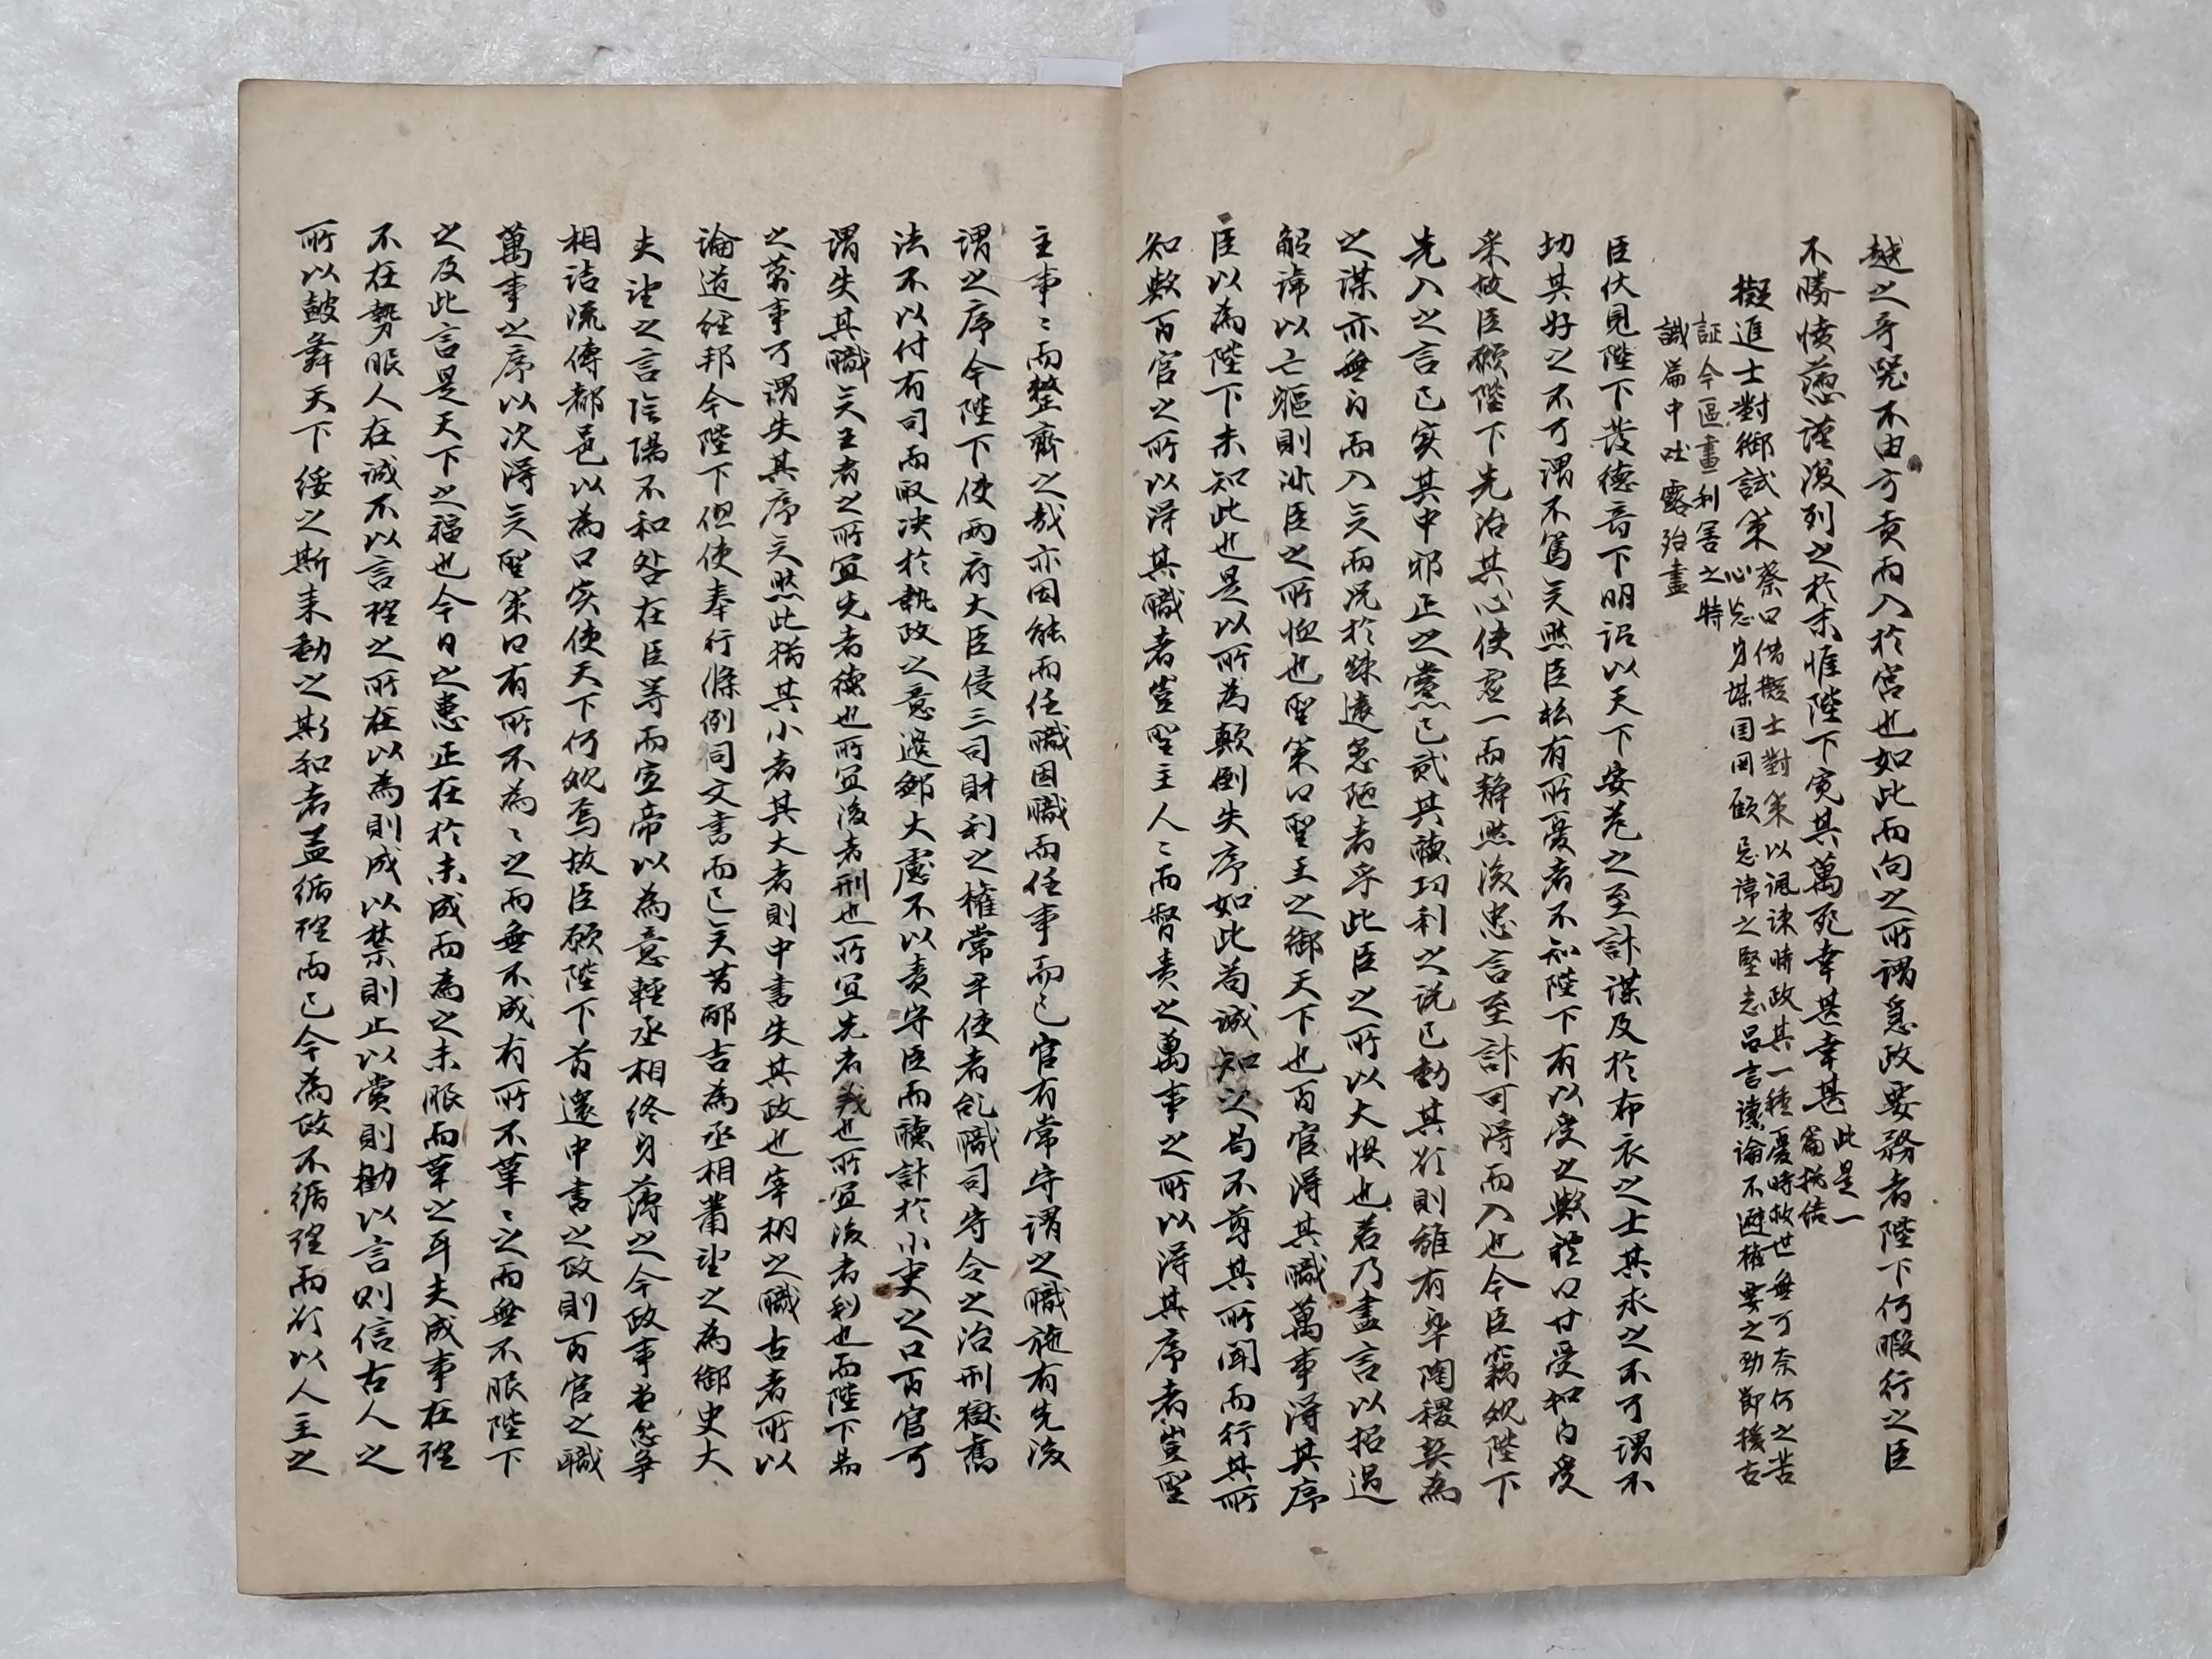 越之奇兕不由方貢而入於宮也如此而向之所謂急政要務者陛下何暇行之臣
不勝憤懣謹復列之於末惟陛下寛其萬死幸甚幸甚
此是一
篇捴结
擬進士對御試策
蔡曰借擬士對策以諷諌時政其一種憂時救世無可奈何之苦
心忘身謀国罔顧忌諱之堅志吕言讜論不避權要之劲節援古
証今區畫利害之特
識篇中吐露殆盡
臣伏見陛下發德音下明詔以天下安危之至計謀及於布衣之士其求之不可謂不
切其好之不可謂不篤矣然臣私有所憂者不知陛下有以受之歟禮曰甘受和白受
采故臣願陛下先治其心使虚一而静然後忠言至計可淂而入也今臣竊觀陛下
先入之言已实其中邪正之黨已貳其聴功利之说已動其欲則雖有皐陶稷契為
之謀亦無自而入矣而况於踈遠愚陋者乎此臣之所以大惧也若乃盡言以招過
觸諱以亡軀則非臣之所恤也聖策曰聖王之御天下也百官淂其職萬事淂其序
臣以為陛下未知此也是以所為顛倒失序如此苟誠知之曷不尊其所聞而行其所
知歟百官之所以淂其職者豈聖主人〻而督责之萬事之所以淂其序者豈聖
主事〻而整齊之哉亦因能而任職因職而任事而已官有常守謂之職施有先後
謂之序今陛下使两府大臣侵三司財利之權常平使者乱職司守令之治刑獄舊
法不以付有司而取决於執政之意邊鄙大慮不以责守臣而聴計於小吏之口百官可
謂失其職矣王者之所宜先者德也所宜後者刑也所宜先者義也所宜後者利也而陛下易
之萬事可謂失其序矣然此猶其小者其大者則中書失其政也宰相之職古者所以
論道经邦今陛下但使奉行條例司文書而已矣昔邴吉為丞相蕭望之為御史大
夫望之言陰陽不和咎在臣等而宣帝以為意輕丞相终身薄之今政事堂忿争
相詰流傳都邑以為口实使天下何觀焉故臣願陛下首還中書之政則百官之職
萬事之序以次淂矣聖策曰有所不為〻之而無不成有所不革〻之而無不服陛下
之及此言是天下之福也今日之患正在於未成而為之未服而革之耳夫成事在理
不在勢服人在诚不以言理之所在以為則成以禁則止以赏則勸以言则信古人之
所以鼓舞天下绥之斯来動之斯和者盖循理而已今為政不循理而欲以人主之